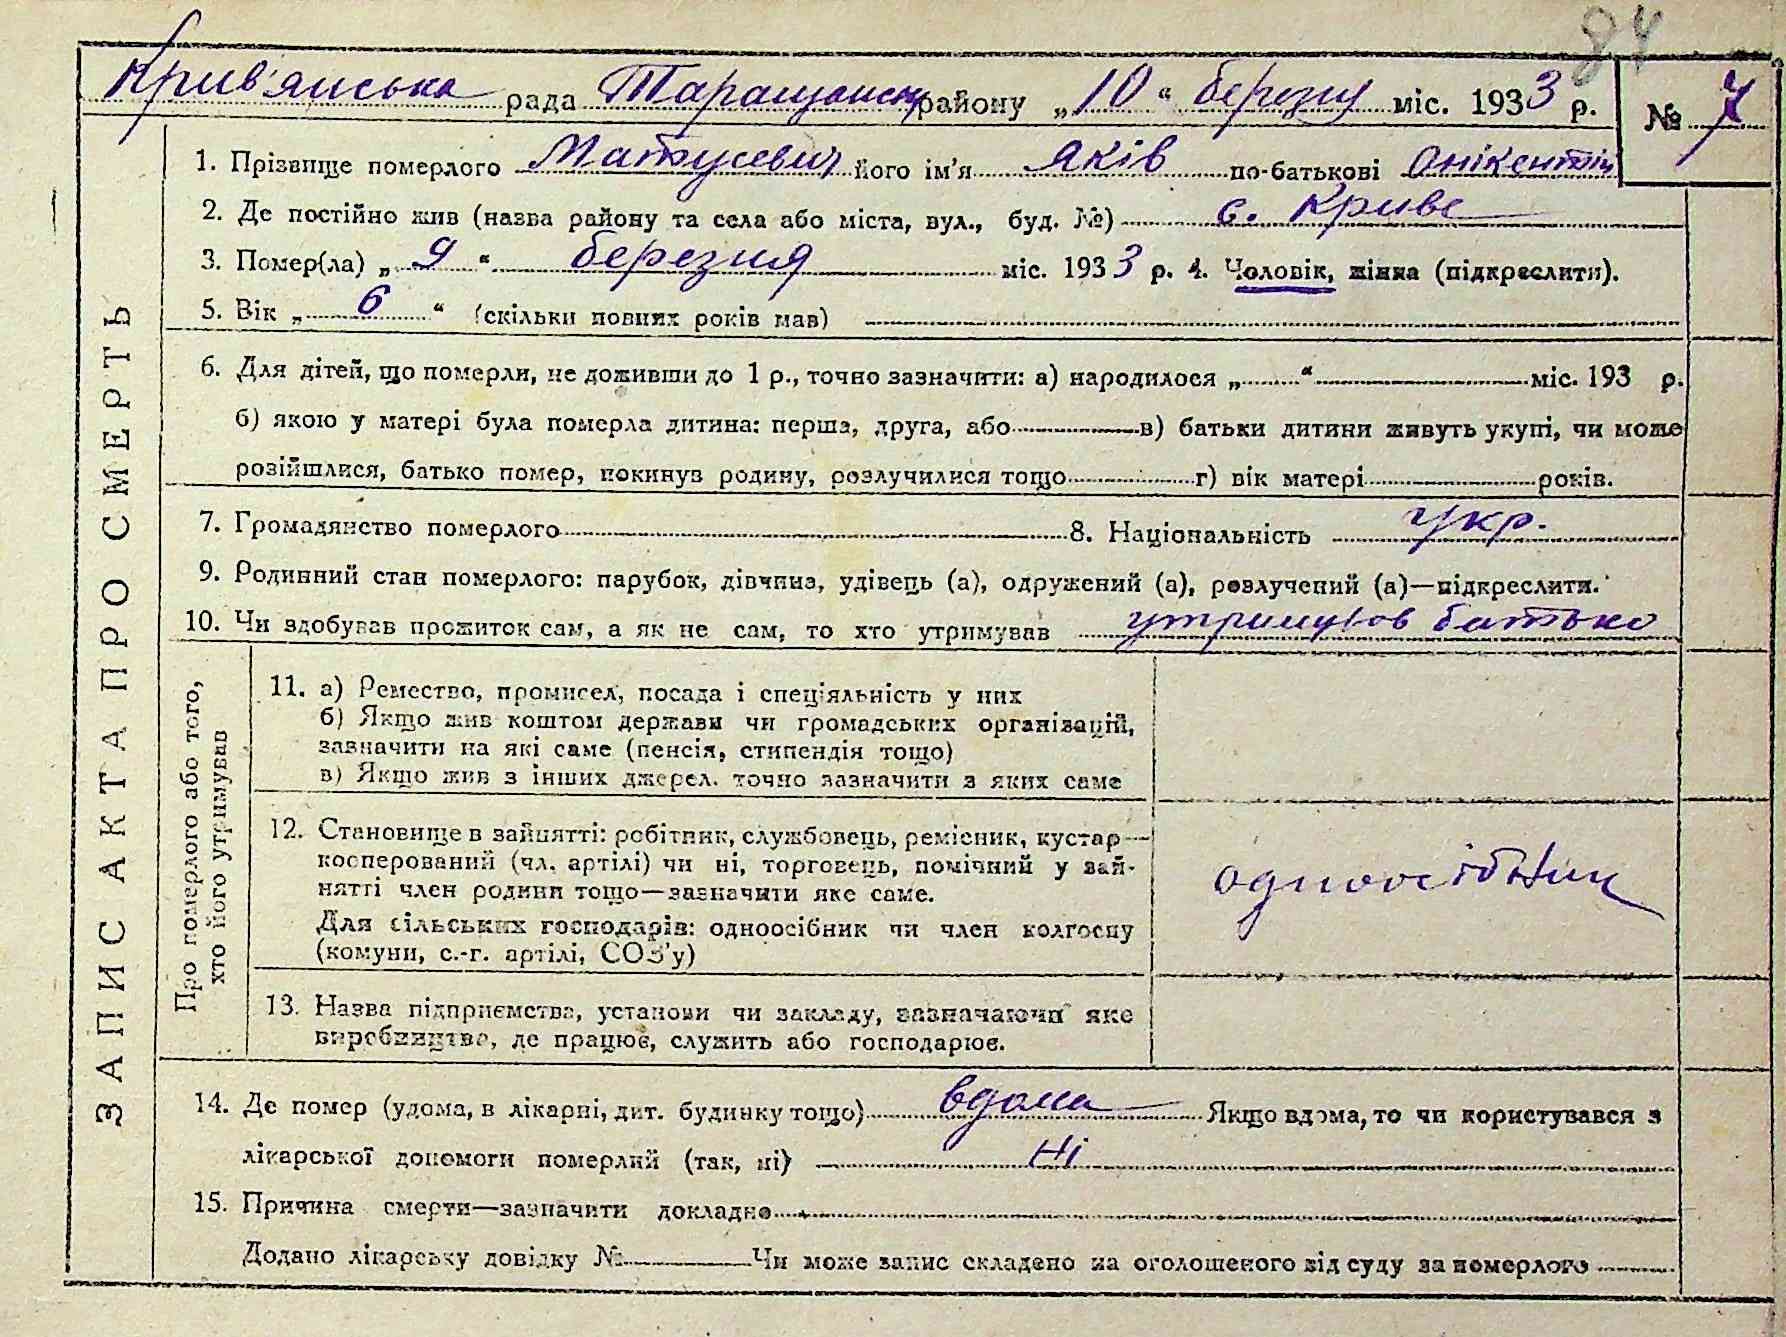 84
Крив'янська рада Таращанськ району „10“ березня міс. 1933 р. № 7
ЗАПИС АКТА ПРО СМЕРТЬ
1. Прізвище померлого Матусевич його ім'я Яків по-батькові Онікентій
2. Де постійно жив (назва району та села або міста, вул., буд. №) с. Криве
3. Помер(ла) „9“ березня міс. 1933 р. 4. Чоловік, жінка (підкреслити).
5. Вік „6“ (скільки повних років мав)
6. Для дітей, що померли, не доживши до 1 р., точно зазначити: а) народилося „ “ міс. 193 р.
б) якою у матері була померла дитина: перша, друга, або в) батьки дитини живуть укупі, чи може
розійшлися, батько помер, покинув родину, розлучилися тощо г) вік матері років.
7. Громадянство померлого 8. Національність укр.
9. Родинний стан померлого: парубок, дівчина, удівець (а), одружений (а), розлучений (а)—підкреслити.
10. Чи здобував прожиток сам, а як не сам, то хто утримував утримував батько
Про померлого або того,
хто його утримував
11. а) Ремество, промисел, посада і спеціяльність у них
б) Якщо жив коштом держави чи громадських організацій,
зазначити на які саме (пенсія, стипендія тощо)
в) Якщо жив з інших джерел. точно зазначити з яких саме
12. Становище в зайнятті: робітник, службовець, ремісник, кустар—
косперований (чл. артілі) чи ні, торговець, помічний у зай-
нятті член родини тощо—зазначити яке саме.
Для сільських господарів: одноосібник чи член колгоспу
(комуни, с.-г. артілі, СОЗ'у)
одноосібник
13. Назва підприємства, установи чи закладу, зазначаючи яке
виробництво, де працює, служить або господарює.
14. Де помер (удома, в лікарні, дит. будинку тощо) вдома Якщо вдома, то чи користувався з
лікарської допомоги померлий (так, ні) Ні
15. Причина смерти—зазначити докладно
Додано лікарську довідку № Чи може запис складено на оголошеного від суду за померлого